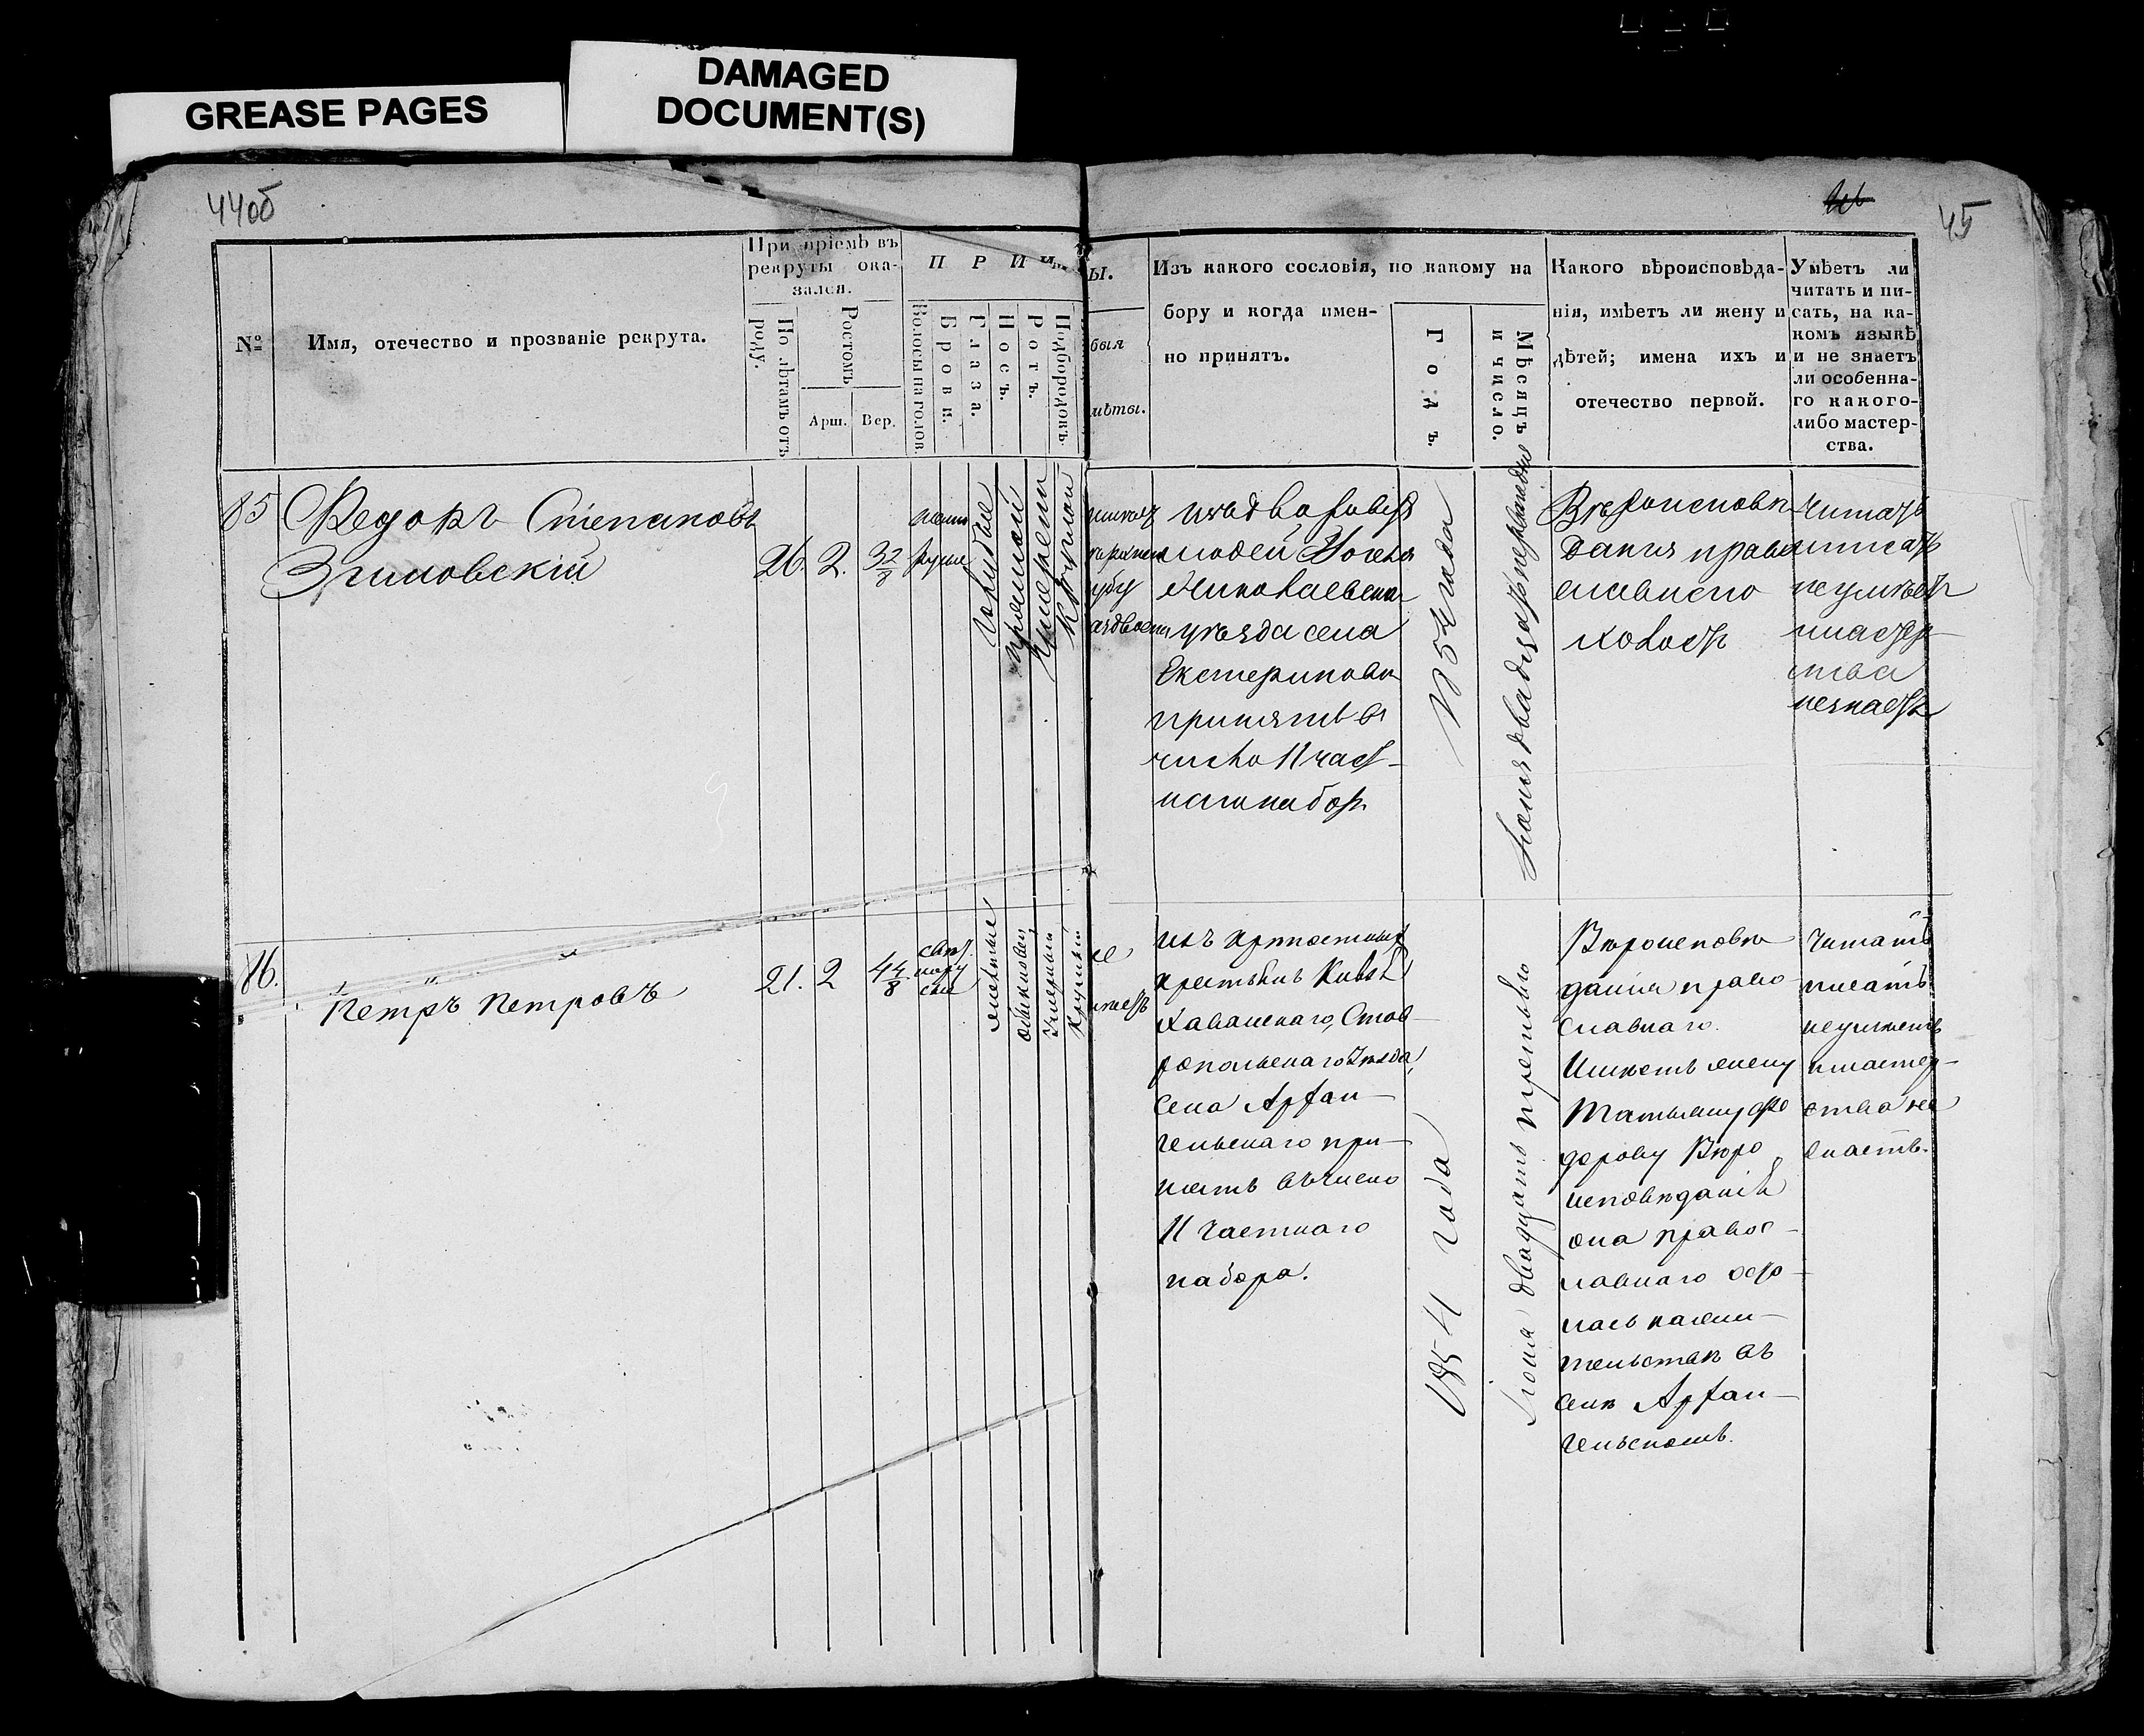 GREASE PAGES
DAMAGED
DOCUMENT(S)
44об
45
№
Имя, отечество и прозваніе рекрута.
При пріемѣ въ
рекруты ока-
зался.
По лѣтамъ отъ
роду.
Ростомъ
Арш.
Вер.
П Р И М
Волосы на голов
Брови.
Глаза.
Носъ.
Ротъ.
Подбородокъ
Ы.
быя
мѣты.
Изъ какого сословія, по какому на
бору и когда имен-
но принятъ.
Годъ.
Мѣсяцъ
и число.
Какого вѣроисповѣда-
нія, имѣетъ ли жену и
дѣтей; имена ихъ и
отечество первой.
Умѣетъ ли
читать и пи-
сать, на ка-
комъ языкѣ
и не знаетъ
ли особенна-
го какого-
либо мастер-
ства.
85
Федоръ Степановъ
Згиловскій
26.
2.
3 2/8
русые
голубые
прямой
умѣрен
круглой
губу
изъ дворовыхъ
людей
Николаевска
уѣзда села
Екатериновки
принятъ въ
число 11 част-
наго набор.
1854 года
Вѣроисповѣ
данія право
славнаго
холостъ
читать
писать
не умѣетъ
мастер
ства
не знаетъ
86.
Петръ Петровъ
21.
2
4 4/8
свѣт.
лору
сые
желтые
обыкновен.
умѣренн
круглый
не
имѣетъ
изъ крѣпостныхъ
крестьянъ Князя
Хованскаго, Став-
ропольскаго Уѣзда,
села Архан-
гельскаго при-
нятъ въ число
11 частнаго
набора.
1854 года
Іюня двадцать третьяго
Вѣроисповѣ
данія право
славнаго.
Имѣетъ жену
Татьяну Фео
дорову Вѣро
исповѣданія
она правос-
лавнаго оста-
лась на жи-
тельствѣ въ
селѣ Архан-
гельскомъ.
Читать
писать
не умѣетъ
и мастер-
ства не
знаетъ.